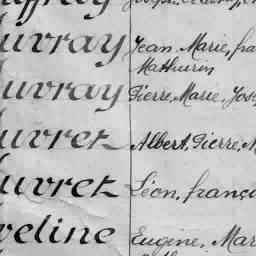 uvray Jean Marie, fra
Mathurin
uvray Pierre, Marie, Jos
uvret Albert, Pierre, M
uvret Léon, franço
veline Eugène, Mar